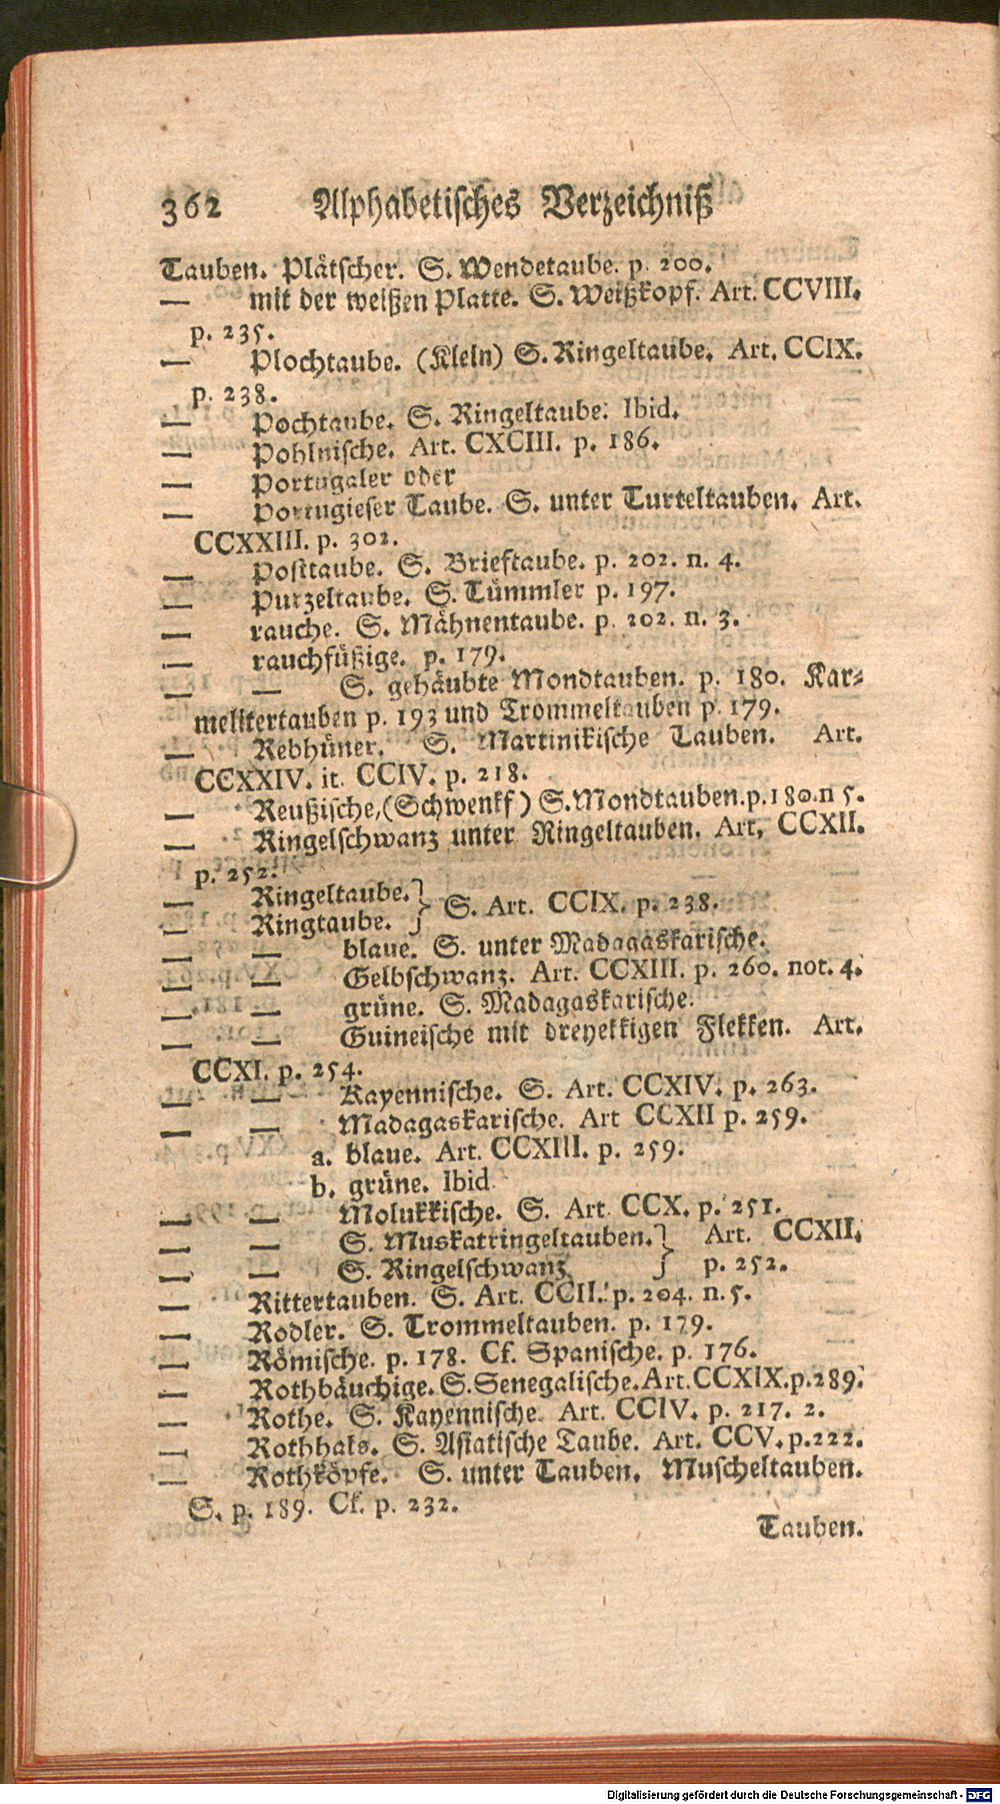 362 Alphabetisches Verzeichniß
Tauben. Plätscher. S. Wendetaube. p. 200.
— mit der weißen Platte. S. Weißkopf. Art. CCVIII.
p. 235.
— Plochtaube. (Klein) S. Ringeltaube. Art. CCIX.
p. 238.
— Pochtaube. S. Ringeltaube. Ibid.
— Pohlnische. Art. CXCIII. p. 186.
— Portugaler oder
— Portugieser Taube. S. unter Turteltauben. Art.
CCXXIII. p. 302.
— Posttaube. S. Brieftaube. p. 202. n. 4.
— Purzeltaube. S. Tümmler p. 197.
— rauche. S. Mähnentaube. p. 202. n. 3.
— rauchfüßige. p. 179.
— — S. gehäubte Mondtauben. p. 180. Kar-
melitertauben p. 193 und Trommeltauben p. 179.
— Rebhüner. S. Martinikische Tauben. Art.
CCXXIV. it. CCIV. p. 218.
— Reußische, (Schwenkf) S. Mondtauben. p. 180. n 5.
— Ringelschwanz unter Ringeltauben. Art. CCXII.
p. 252.
— Ringeltaube. } S. Art. CCIX. p. 238.
— Ringtaube. }
— — blaue. S. unter Madagaskarische.
— — Gelbschwanz. Art. CCXIII. p. 260. not. 4.
— — grüne. S. Madagaskarische.
— — Guineische mit dreyekkigen Flekken. Art.
CCXI. p. 254.
— — Kayennische. S. Art. CCXIV. p. 263.
— — Madagaskarische. Art CCXII p. 259.
a. blaue. Art. CCXIII. p. 259.
b. grüne. Ibid
— — Molukkische. S. Art. CCX. p. 251.
— — S. Muskatringeltauben. } Art. CCXII.
— — S. Ringelschwanz } p. 252.
— Rittertauben. S. Art. CCII. p. 204. n. 5.
— Rodler. S. Trommeltauben. p. 179.
— Römische. p. 178. Cf. Spanische. p. 176.
— Rothbäuchige. S. Senegalische. Art. CCXIX. p. 289.
— Rothe. S. Kayennische. Art. CCIV. p. 217. 2.
— Rothhals. S. Asiatische Taube. Art. CCV. p. 222.
— Rothköpfe. S. unter Tauben. Muscheltauben.
S. p. 189. Cf. p. 232.
Tauben.
Digitalisierung gefördert durch die Deutsche Forschungsgemeinschaft - DFG